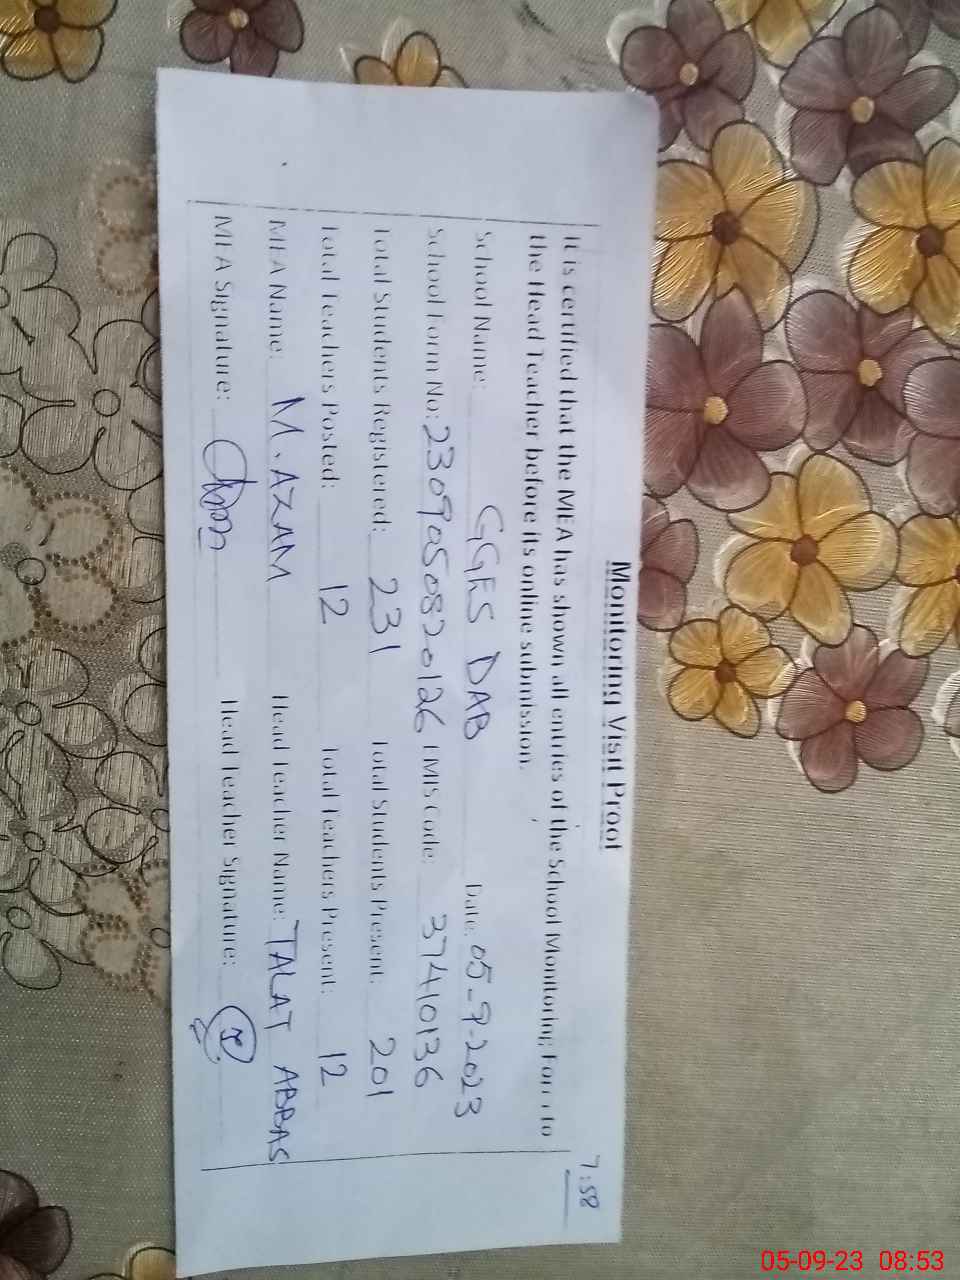 7:58
Monitoring Visit Proof
It is certified that the MEA has shown all entries of the School Monitoring Form to
the Head Teacher before its online submission.
School Name: GGES DAB Date: 05-9-2023
School Form No: 2309050820126 EMIS Code: 37410136
Total Students Registered: 231 Total Students Present: 201
Total Teachers Posted: 12 Total Teachers Present: 12
MEA Name: M. AZAM Head Teacher Name: TALAT ABBAS
MEA Signature: Head Teacher Signature:
05-09-23 08:53